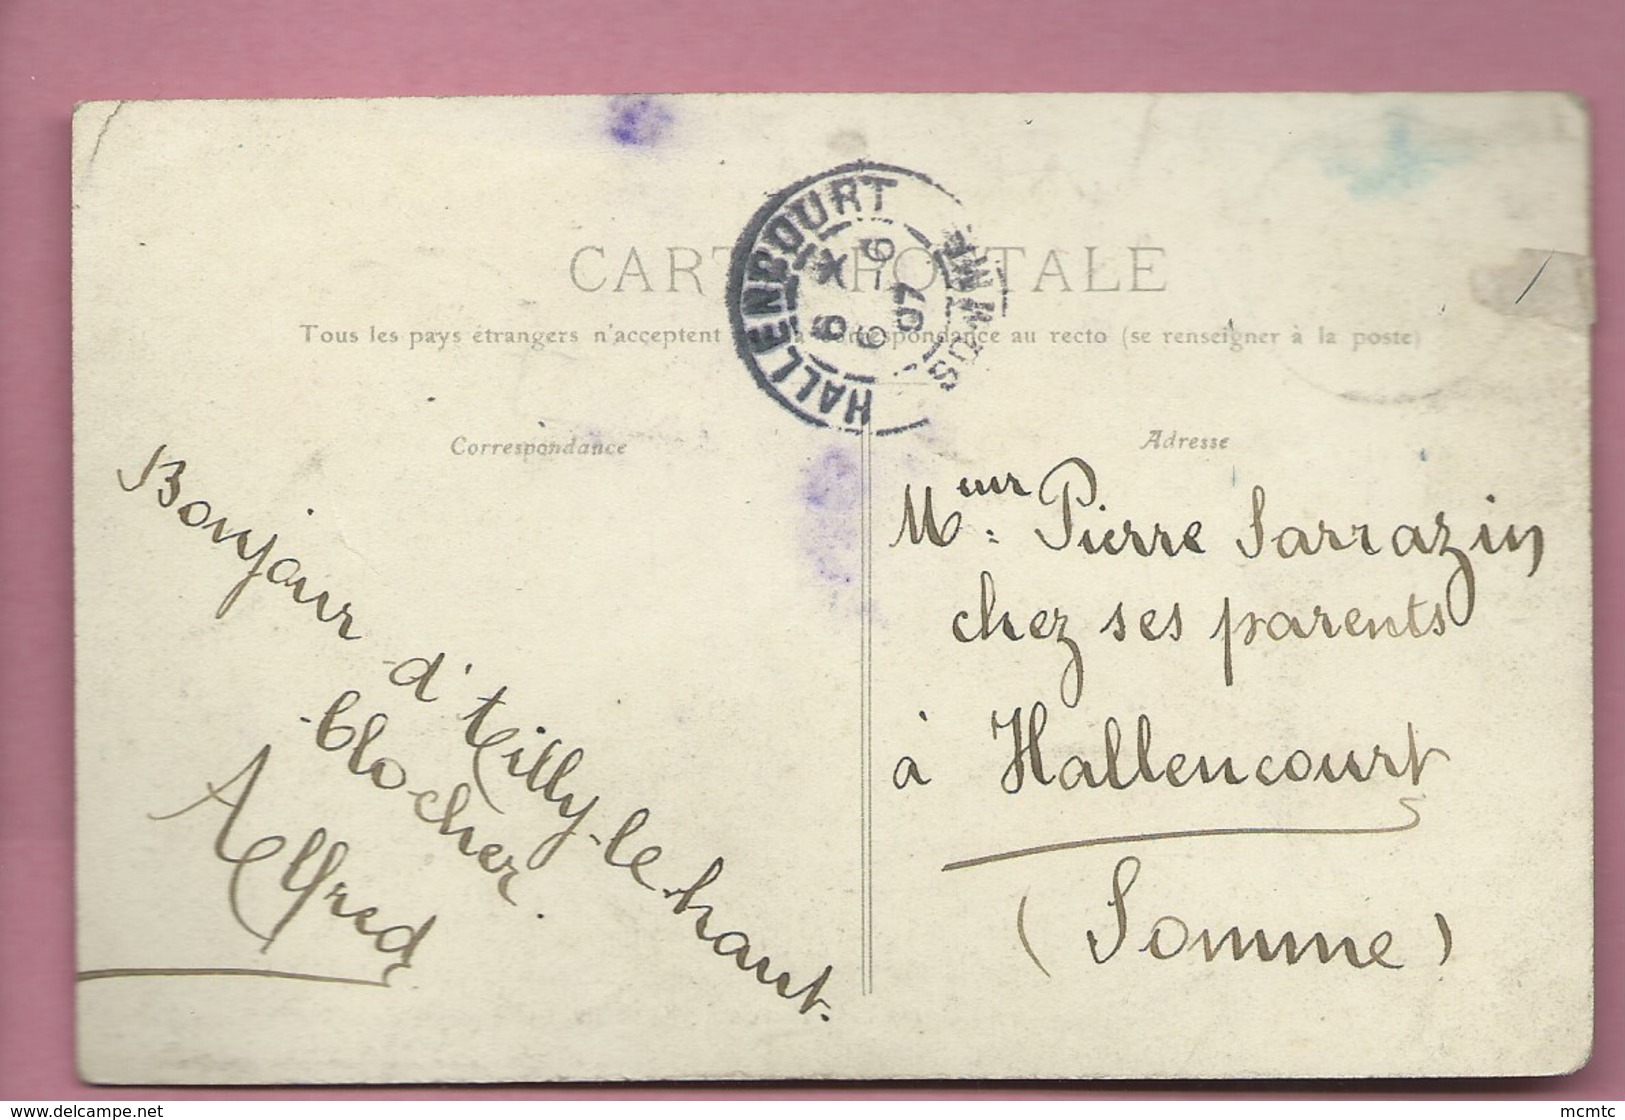 CARTE POSTALE
Tous les pays étrangers n'acceptent pas la correspondance au recto (se renseigner à la poste)
HALLENCOURT
SOMME
6 * 6
9 - 6
07
Correspondance
Adresse
Bonjour d'teilly-le-haut-
blocher.
Alfred
Mr: Pierre Sarrazin
chez ses parents
à Hallencourt
(Somme)
www.delcampe.net
mcmtc